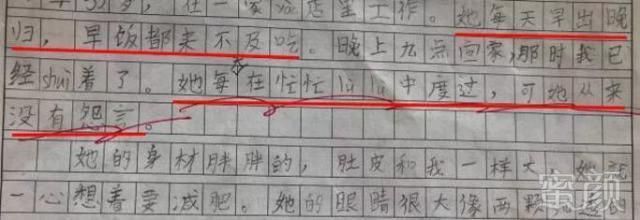 岁，在一家酒店里工作。她每天早出晚
归，早饭都来不及吃。晚上九点回家，那时我已
经shui着了。她每在忙忙lulu中度过，可她从来
没有怨言。
她的身材胖胖的，肚皮和我一样大，她就
一心想着要减肥。她的眼睛很大像两颗
蜜颜